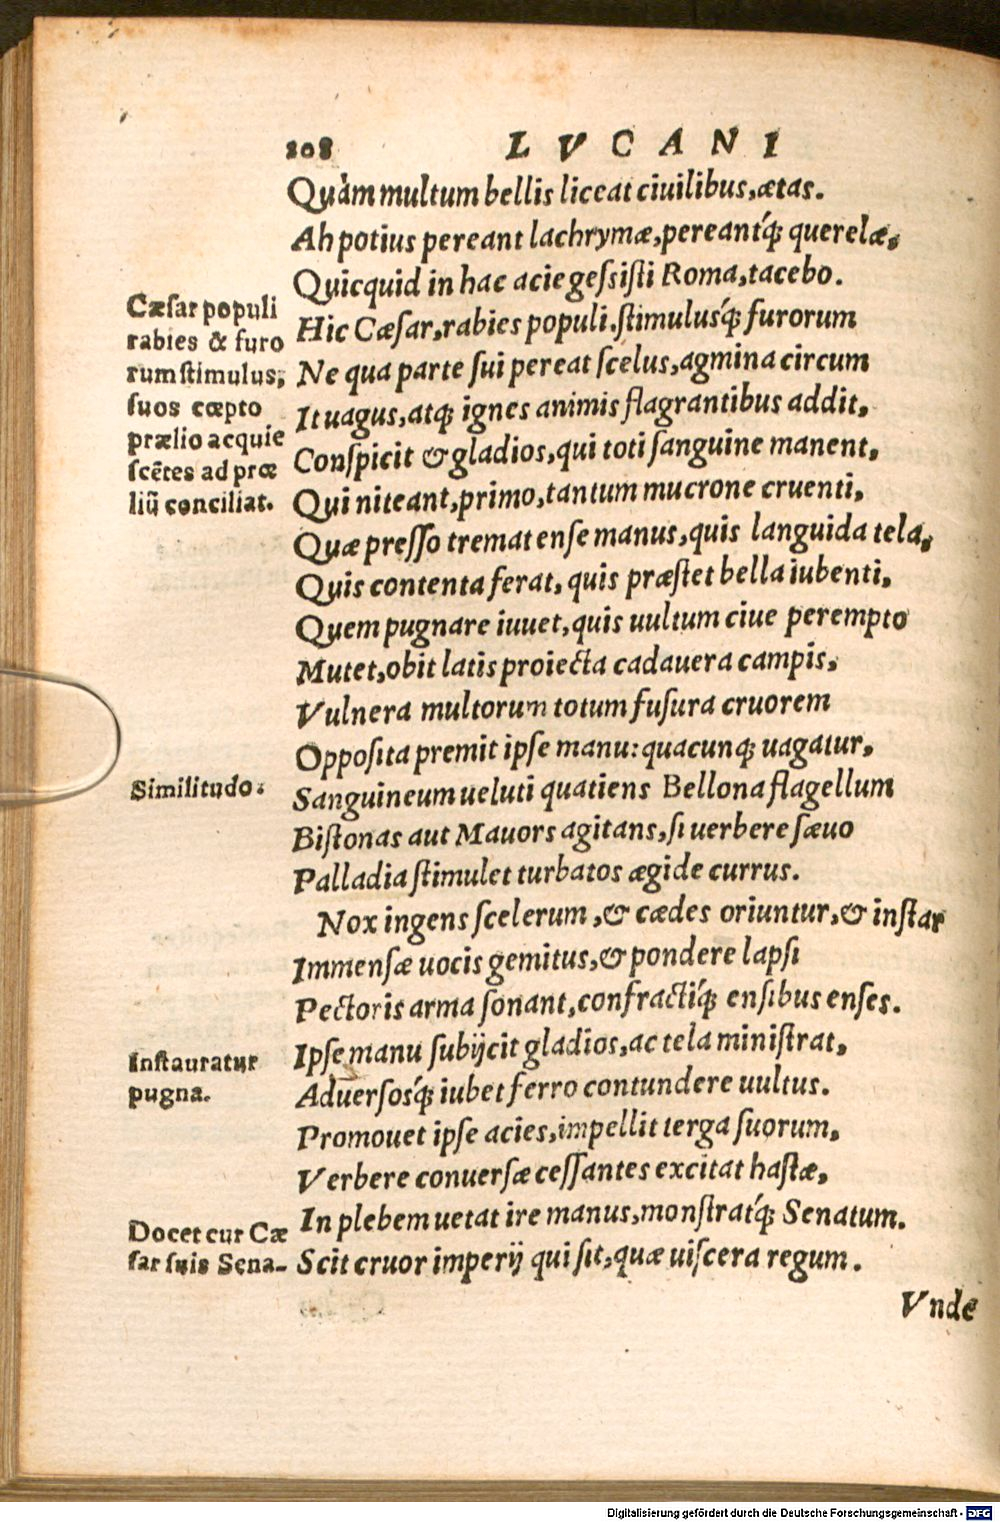 208 LVCANI
Quàm multum bellis liceat ciuilibus, ætas.
Ah potius pereant lachrymæ, pereantq́; querelæ,
Quicquid in hac acie geſsiſti Roma, tacebo.
Cæſar populi
rabies & furo
rum ſtimulus,
ſuos cœpto
prælio acquie
ſcẽtes ad prœ
liũ conciliat.
Hic Cæſar, rabies populi. ſtimulusq́; furorum
Ne qua parte ſui pereat ſcelus, agmina circum
It uagus, atq; ignes animis flagrantibus addit,
Conſpicit & gladios, qui toti ſanguine manent,
Qui niteant, primo, tantum mucrone cruenti,
Quæ preſſo tremat enſe manus, quis languida tela,
Quis contenta ferat, quis præſtet bella iubenti,
Quem pugnare iuuet, quis uultum ciue perempto
Mutet, obit latis proiecta cadauera campis,
Vulnera multorum totum fuſura cruorem
Oppoſita premit ipſe manu: quacunq; uagatur,
Similitudo.
Sanguineum ueluti quatiens Bellona flagellum
Biſtonas aut Mauors agitans, ſi uerbere ſæuo
Palladia ſtimulet turbatos ægide currus.
Nox ingens ſcelerum, & cædes oriuntur, & inſtar
Immenſæ uocis gemitus, & pondere lapſi
Pectoris arma ſonant, confractiq́; enſibus enſes.
Inſtauratur
pugna.
Ipſe manu ſubijcit gladios, ac tela miniſtrat,
Aduerſosq́; iubet ferro contundere uultus.
Promouet ipſe acies, impellit terga ſuorum,
Verbere conuerſæ ceſſantes excitat haſtæ,
In plebem uetat ire manus, monſtratq́; Senatum.
Docet cur Cæ
ſar ſuis Sena-
Scit cruor imperij qui ſit, quæ uiſcera regum.
Vnde
Digitalisierung gefördert durch die Deutsche Forschungsgemeinschaft - DFG